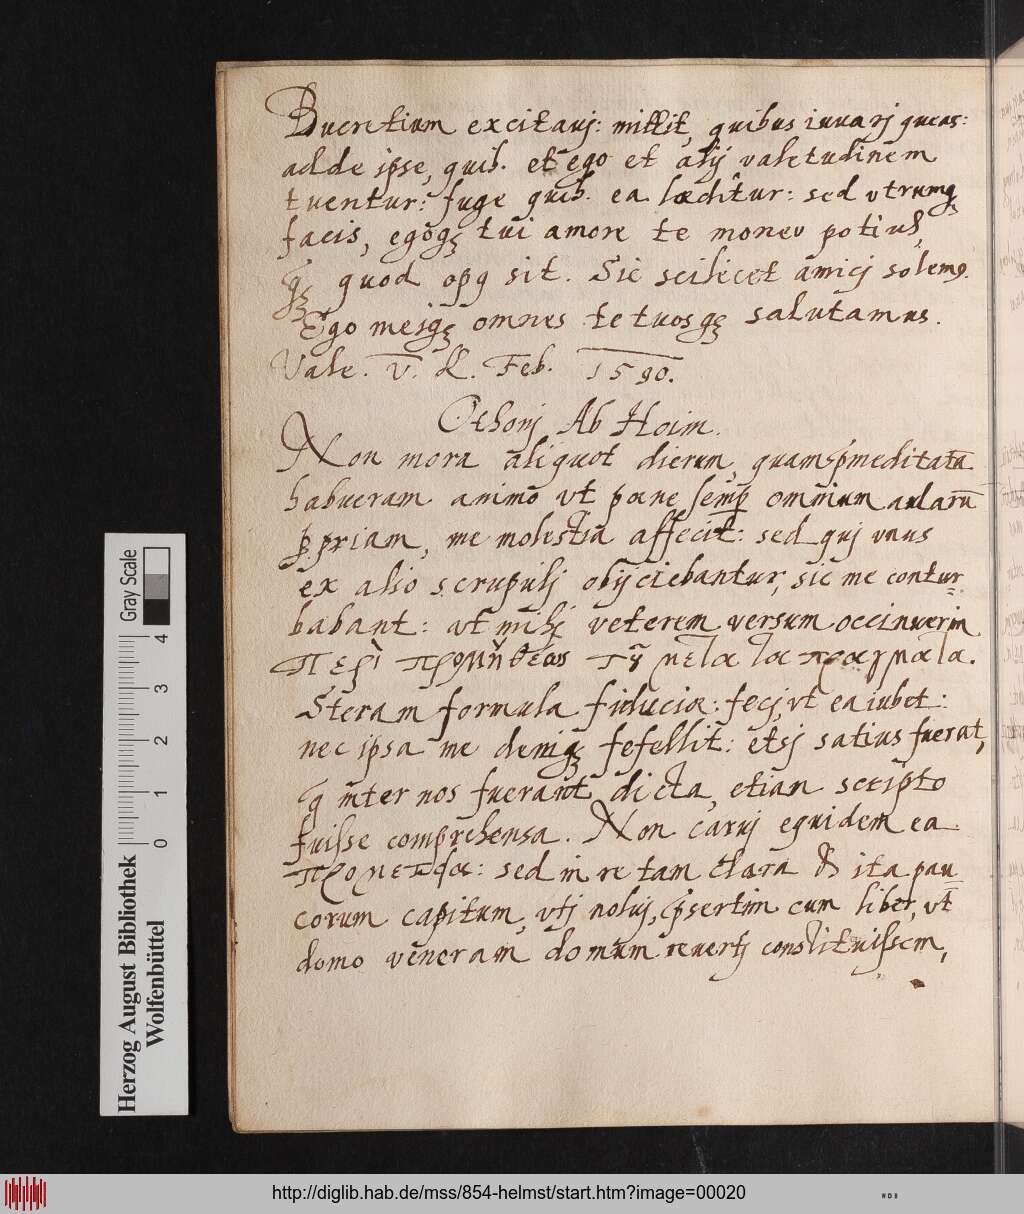 Ducretium excitavj: mittit, quibus iuvarj queas:
adde ipse, quib. et ego et alij valetudinem
tuentur: fuge quib. ea læditur: sed vtrumq;
facis, egoq; tui amore te moneo potius,
q; quod opq sit. Sic scilicet amicj solem9.
Ego meiq; omnes te tuosq; salutamus.
Vale. V. K. Feb. 1590.
Othonj Ab Hoim.
Non mora aliquot dierum, quam p̄meditatā
habueram animo vt pæne semp omnium aularū
ppriam, me molestia affecit: sed quj vnus
ex alio scrupulj obijciebantur, sic me contur=
babant: vt mihj veterem versum occinuerim
Περὶ προμηθέως τȣ̃ μετὰ τὰ πράγματα.
Steram formula fiduciæ: fecj, vt ea iubet:
nec ipsa me deniq; fefellit: etsj satius fuerat,
q inter nos fuerant dicta, etiam scripto
fuisse comprehensa. Non caruj equidem ea
προμεθ: sed in re tam clara & ita pau=
corum capitum, vtj noluj, p̄sertim cum liber, vt
domo veneram domum revertj constituissem,
Herzog August Bibliothek
Wolfenbüttel
Gray Scale
0 1 2 3 4
http://diglib.hab.de/mss/854-helmst/start.htm?image=00020